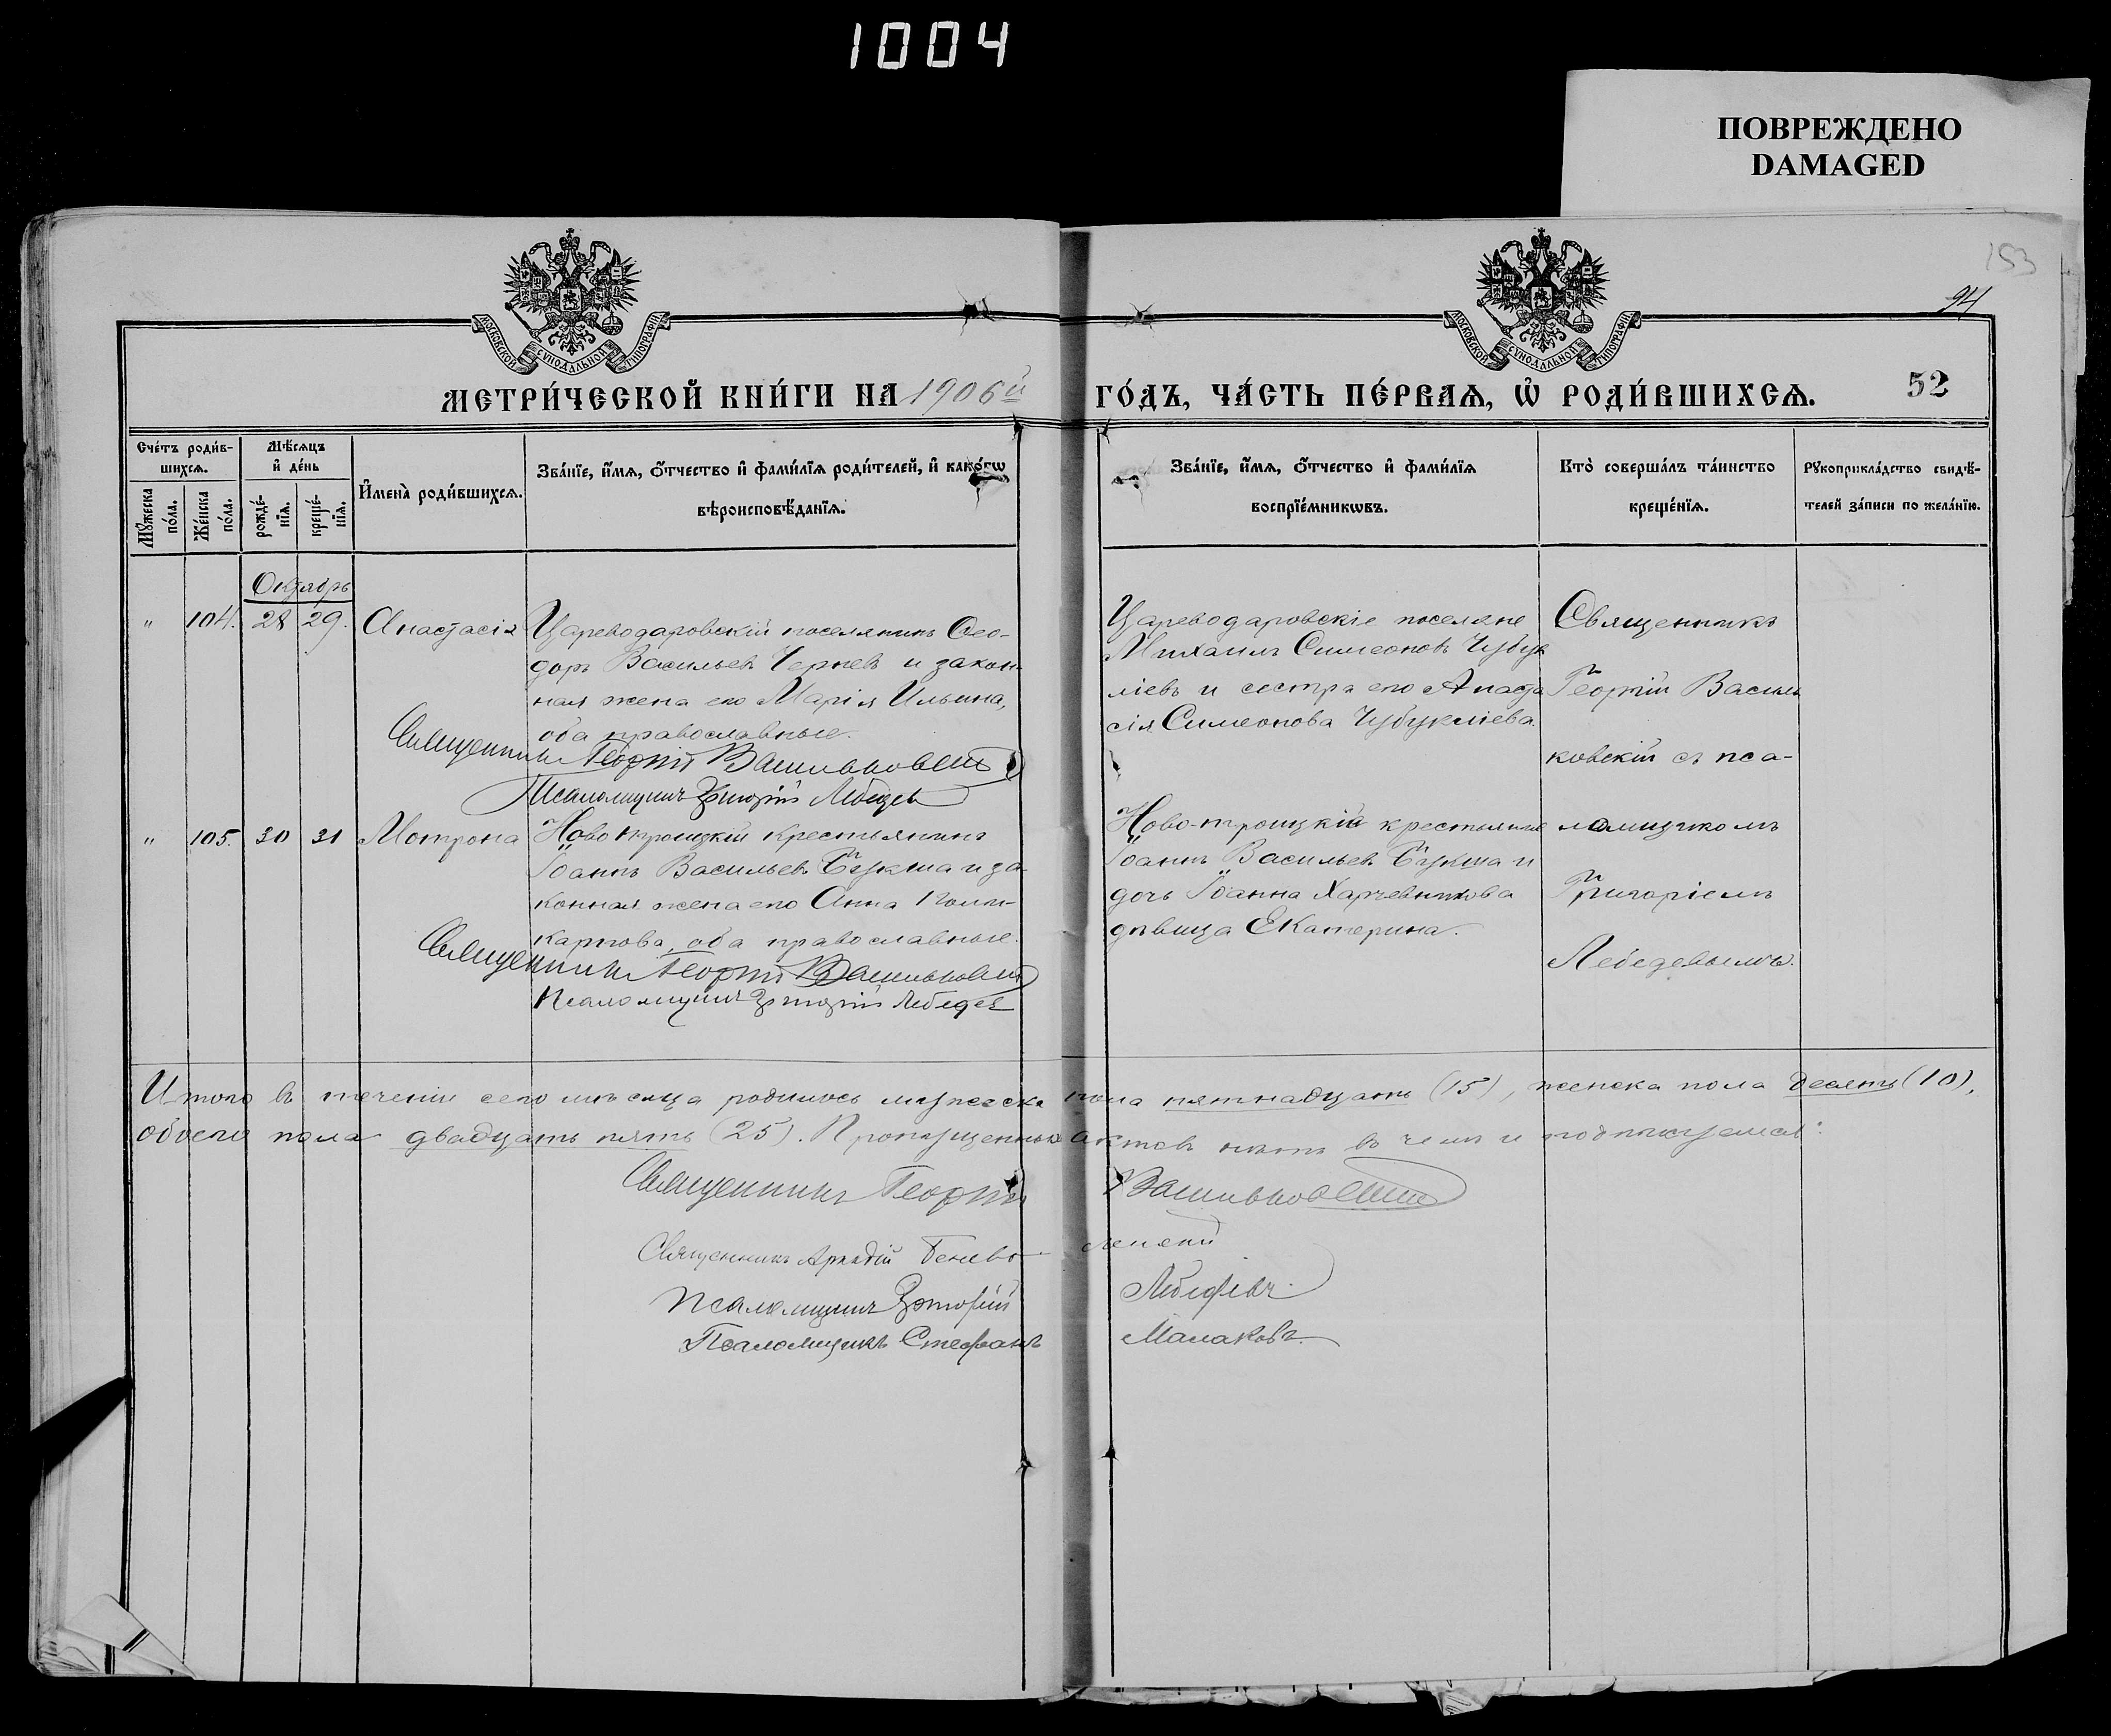 1004
ПОВРЕЖДЕНО
DAMAGED
153
94
МОСКОВСКОЙ СѴНОДАЛЬНОЙ ТИПОГРАФІИ
МОСКОВСКОЙ СѴНОДАЛЬНОЙ ТИПОГРАФІИ
МЕТРИ́ЧЕСКОЙ КНИ́ГИ НА 1906й ГО́ДЪ, ЧА́СТЬ ПЕ́РВАѦ, Ѡ҆ РОДИ́ВШИХСѦ.
52
Сче́тъ роди́в-
шихсѧ.
Мꙋ́жеска по́ла.
Же́нска по́ла.
Мѣ́сѧцъ и҆ де́нь
рожде́-нїѧ.
креще́-нїѧ.
И҆мена̀ роди́вшихсѧ.
Зва́нїе, и҆́мѧ, ѻ҆́тчество и҆ фами́лїѧ роди́телей, и҆ како́гѡ
вѣроисповѣ́данїѧ.
Зва́нїе, и҆́мѧ, ѻ҆́тчество и҆ фами́лїѧ
воспрїе́мникѡвъ.
Кто̀ соверша́лъ та́инство
креще́нїѧ.
Рꙋкоприкла́дство свидѣ́-
телей за́писи по жела́нїю.
Октябрь
" 104. 28 29. Анастасія
Цареводаровскій поселянинъ Ѳео-
доръ Васильевъ Черневъ и закон-
ная жена его Марія Ильина,
оба православные.
Священникъ Георгій Васильковскій
Псаломщикъ Григорій Лебедев
Цареводаровскіе поселяне
Михаилъ Симеоновъ Чубук
ліевъ и сестра его Анаста
сія Симеонова Чубукліева.
Священникъ
Георгій Василь
ковскій съ пса-
ломщикомъ
Григоріемъ
Лебедевымъ.
" 105. 30 31 Мотрона
Ново троицкій крестьянинъ
Іоаннъ Васильевъ Букша и за
конная жена его Анна Поли-
карпова, оба православные.
Священникъ Георгій Васильковскій
Псаломщикъ Григорій Лебедев
Ново-троицкіе крестьяне
Іоаннъ Васильев Букша и
дочь Іоанна Харчевникова
дѣвица Екатерина.
Итого въ теченіи сего мѣсяца родилось мужеска пола пятнадцать (15), женска пола десять (10),
обоего пола двадцать пять (25). Пропущенныхъ актовъ нѣтъ въ чемъ и подписуемся:
Священникъ Георгій Васильковскій
Священникъ Аркадій Беневоленскій
Псаломщикъ Григорій Лебедевъ
Псаломщикъ Стефанъ Малаковъ